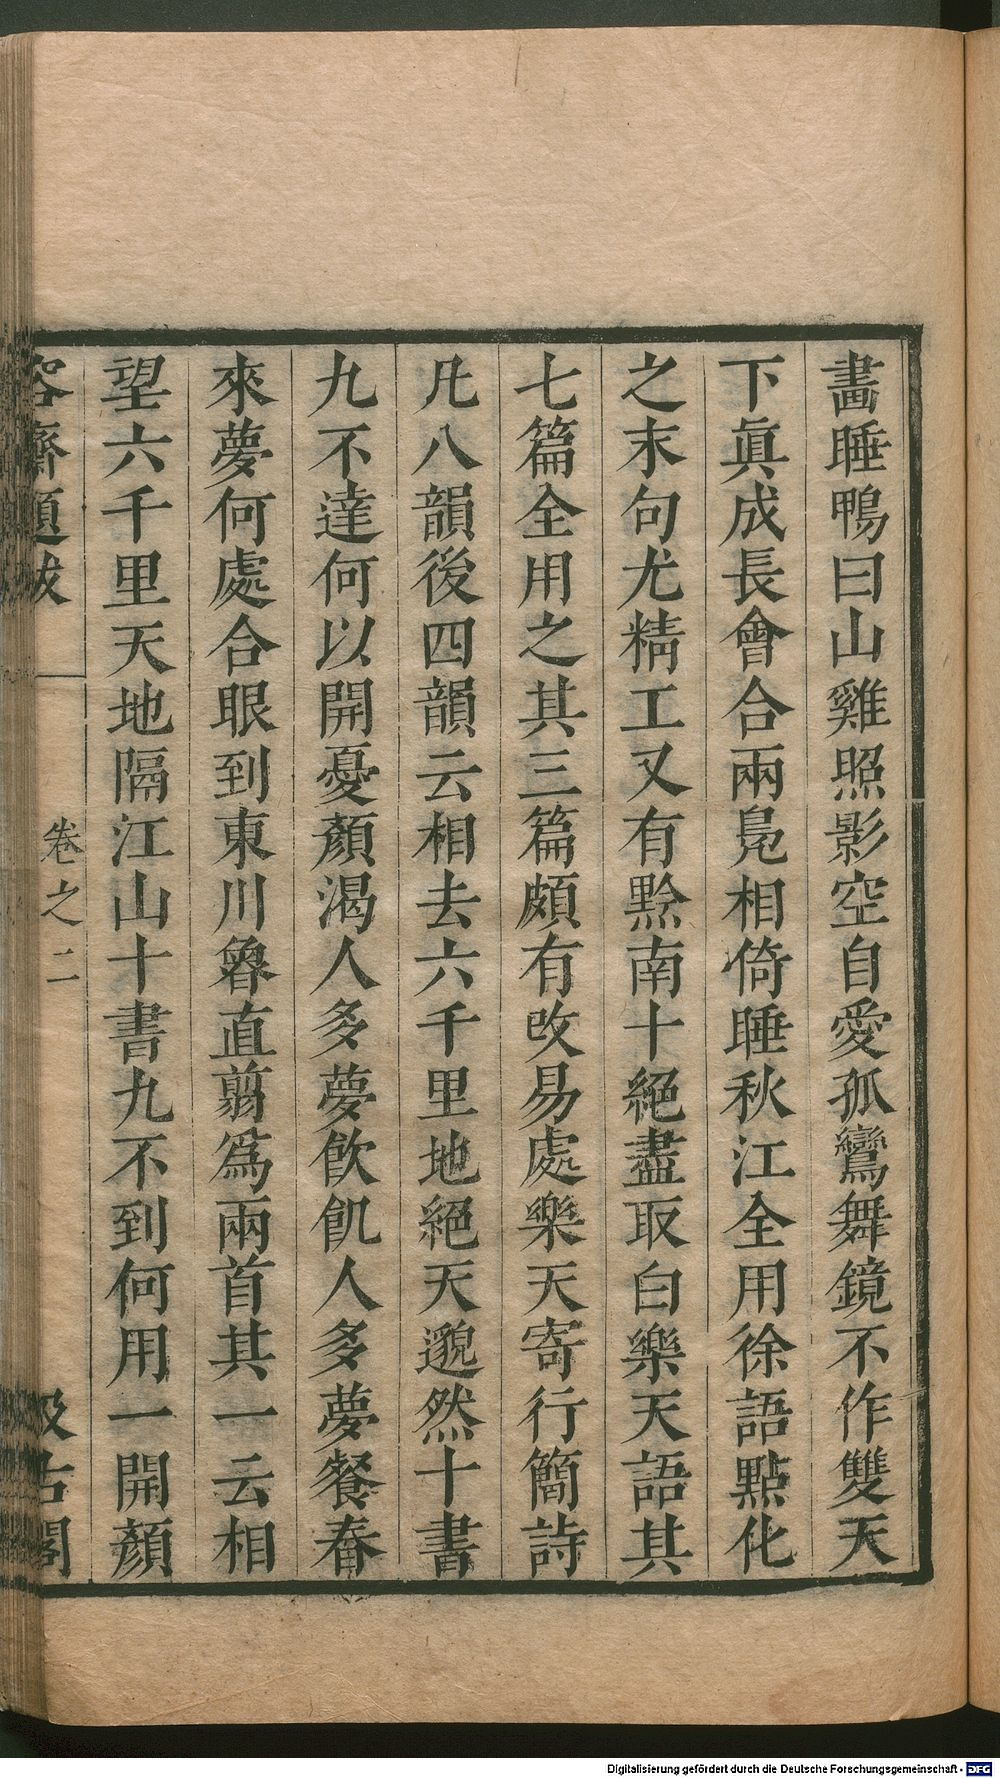 畵睡鴨曰山雞照影空自愛孤鸞舞鏡不作雙天
下眞成長會合兩鳧相倚睡秋江全用徐語點化
之末句尤精工又有黔南十絕盡取白樂天語其
七篇全用之其三篇頗有改易處樂天寄行簡詩
凡八韻後四韻云相去六千里地絕天邈然十書
九不達何以開憂顏渴人多夢飲飢人多夢餐春
來夢何處合眼到東川魯直翦爲兩首其一云相
望六千里天地隔江山十書九不到何用一開顏
容齋題跋 卷之二 汲古閣
Digitalisierung gefördert durch die Deutsche Forschungsgemeinschaft - DFG